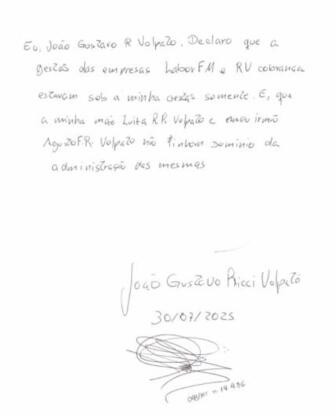 Eu, João Gustavo R Volpato. Declaro que a
gestão das empresas Labor FM e RV cobrança
estavam sob a minha somente. E, que
a minha mãe Luiza R.R Volpato e meu irmão
Augusto F.R. Volpato não tinham dominio da
administração das mesmas
João Gustavo Ricci Volpato
30/07/2025
OAB/MT = 14.486